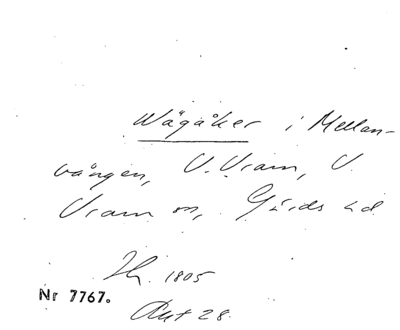 Wägåker i Mellan-
vången, V. Vram, V.
Vram sn, Gärds hd
1805
Nr 7767.
Akt 28.